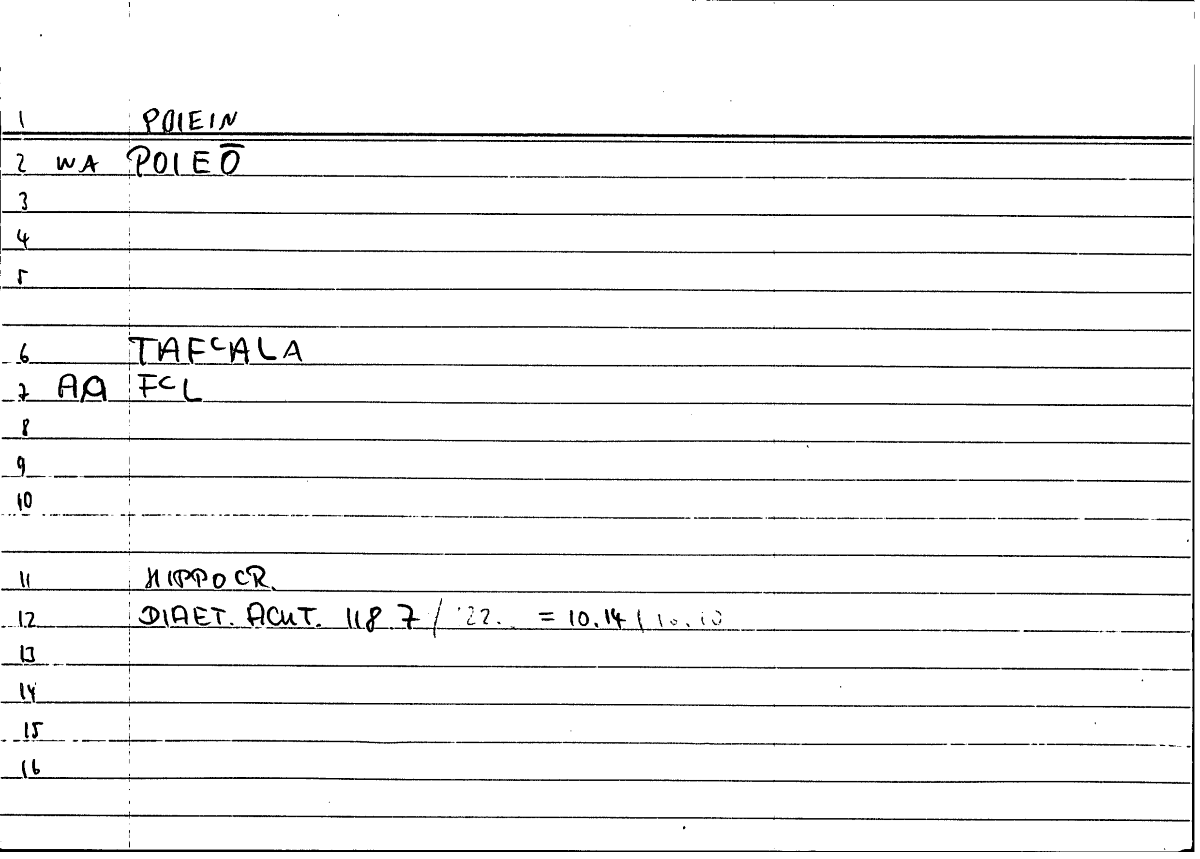 1 POIEIN
2 WA POIEŌ
3
4
5
6 TAFCALA
7 AA FCL
8
9
10
11 HIPPOCR.
12 DIAET. ACUT. 118 7 / 122. = 10.14 /
13
14
15
16